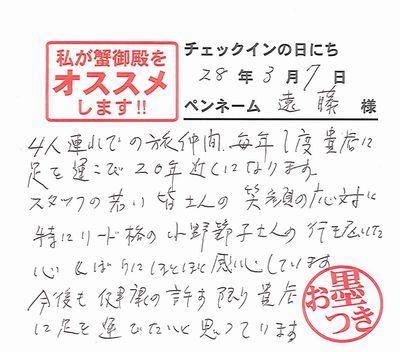 私が蟹御殿を
オススメ
します!!
チェックインの日にち
28年3月7日
ペンネーム 遠藤 様
4人連れでの旅仲間、毎年1度貴店に
足を運こび20年近くになります。
スタッフの若い皆さんの笑顔の応対に
特にリード格の小野節子さんの行き届いた
心くばりにほとほと感心しています
今後も健康の許す限り貴店
に足を運びたいと思っています
お墨つき